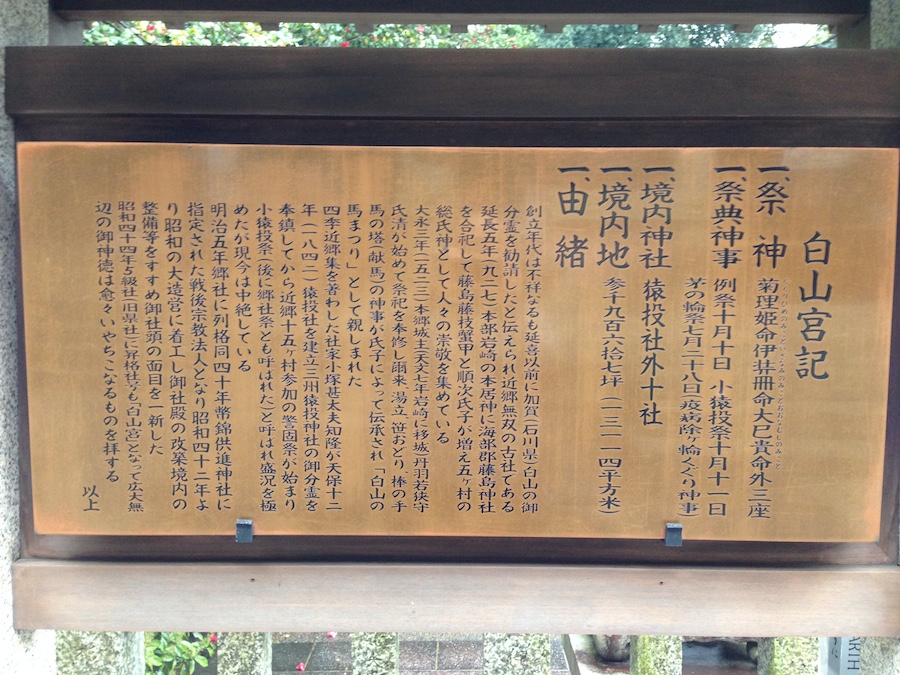 白山宮記
一、祭神 菊理姫命伊弉冊命大巳貴命外三座
一、祭典神事 例祭十月十日 小猿投祭十月十一日
茅の輪祭七月二十八日(疫病除ヶ輪くぐり神事)
一、境内神社 猿投社外十社
一、境内地 参千九百六拾七坪(一三一一四平方米)
一、由緒
創立年代は不祥なるも延喜以前に加賀(石川県)白山の御
分霊を勧請したと伝えられ近郷無双の古社である
延長五年(九二七)本部岩崎の本居神に海部郡藤島神社
を合祀して藤島藤枝蟹甲と順次氏子が増え五ヶ村の
総氏神として人々の崇敬を集めている
大永三年(一五二三)本郷城主(天文七年岩崎に移城)丹羽若狭守
氏清が始めて祭祀を奉修し爾来、湯立、笹おどり、棒の手
馬の塔(献馬)の神事が氏子によって伝承され「白山の
馬まつり」として親しまれた
四季近郷集を著わした社家小塚甚太夫知隆が天保十二
年(一八四二)猿投社を建立三州猿投神社の御分霊を
奉鎮してから近郷十五ヶ村参加の警固祭が始まり
小猿投祭(後に郷社祭とも呼ばれた)と呼ばれ盛況を極
めたが現今は中絶している
明治五年郷社に列格同四十年幣錦供進神社に
指定された戦後宗教法人となり昭和四十二年よ
り昭和の大造営に着工し御社殿の改築境内の
整備等をすすめ御社頭の面目を一新した
昭和四十四年5級社(旧県社)に昇格社号も白山宮となって広大無
辺の御神徳は愈々いやちこなるものを拝する
以上